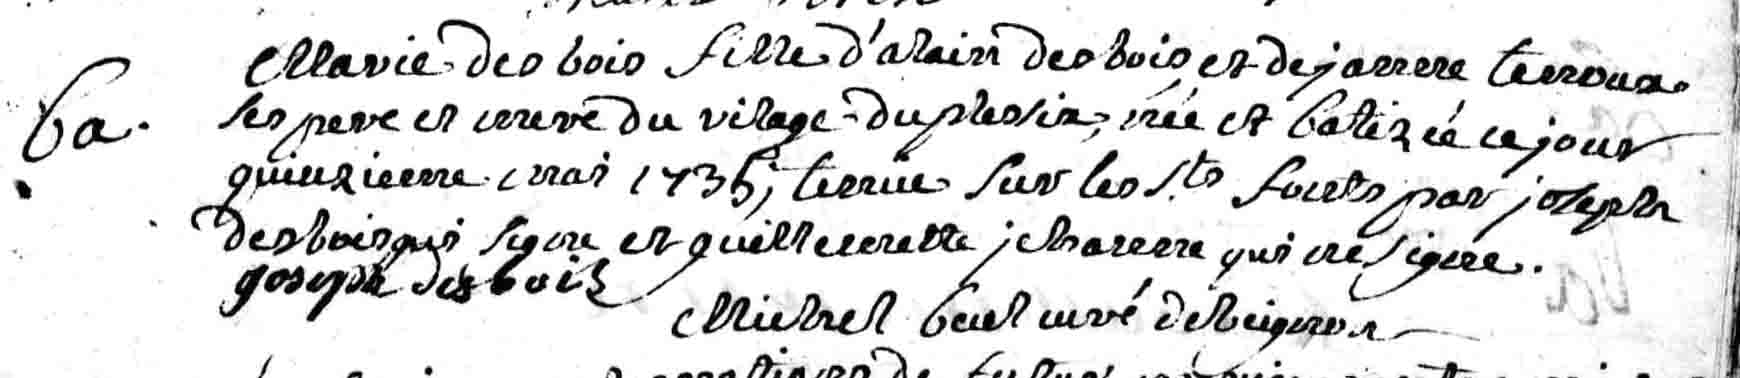 Marie des bois fille d'alain des bois et de janne terroux
Ba.
ses pere et mere du village du plessix, née et batizée ce jour
quinzieme mai 1735, tenue sur les Sts fonts par joseph
desbois qui signe et guillemette jehanne qui ne signe.
joseph des bois
Michel beul curé de beignon